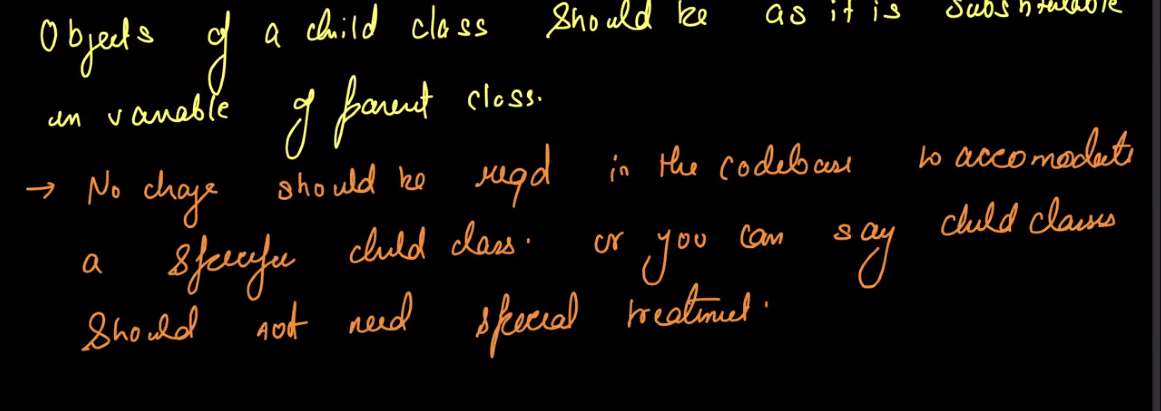 Objects of a child class should be as it is substitutable
in variable of parent class.
→ No change should be reqd in the codebase to accomodate
a specific child class. or you can say child classes
should not need special treatment.